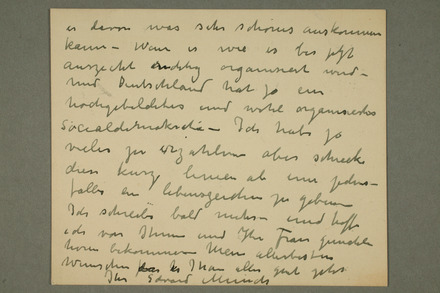 es davon was sehr schönes auskommen
kann – Wenn es wie es bis jetzt
aussieht organisiert wird –
und Deutschland hat ja ein
hochgebildetes und wohl organisiertes
Socialdemokratie – Ich habe ja
vieles zu erzählen aber schreibe
dies kurz um jeden-
falles ein Lebenszeichen zu geben
Ich schreibe bald mehr – und hoffe
ich von Ihnen und Ihr Frau
hören bekommen Mein allerbesten
Wünschen das es Ihnen alles gut geht
Ihr Edvard Munch